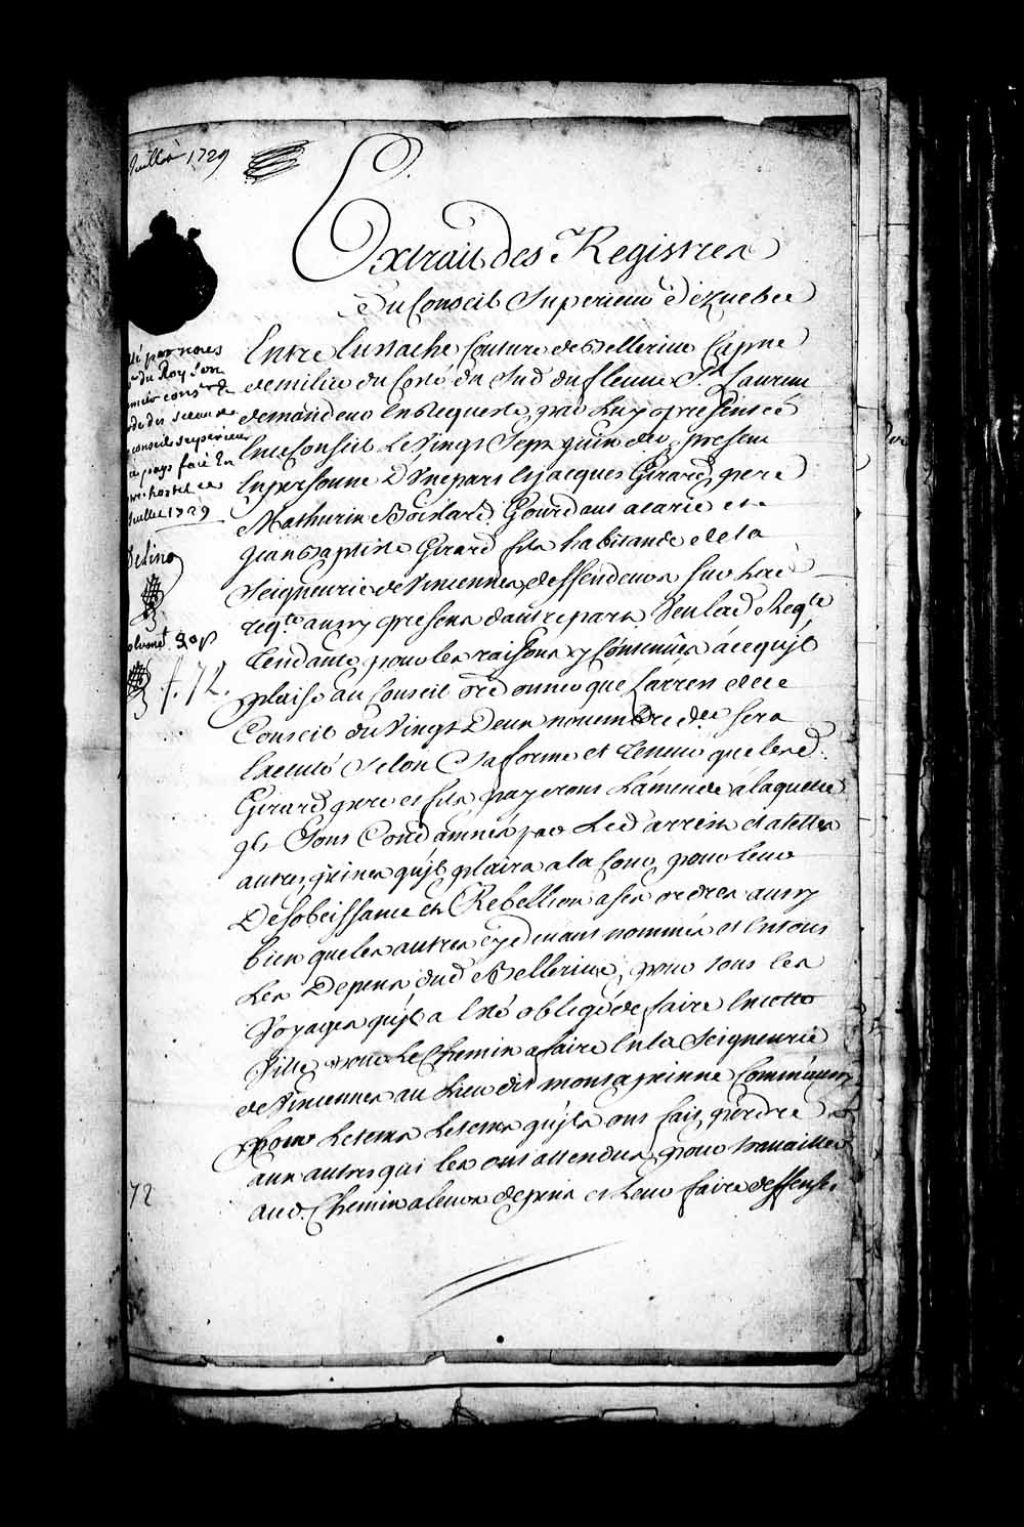 Juillet 1729
Extrait des Registres
Du Conseil Superieur de Quebec
lé par nous
du Roy Son
mier cons.er
rde des sceaux
conseil superieur
ce pays faié En
hostel ce
Juillet 1729
72
Entre Eustache Couture de Bellerive Capne
de milice du Costé du Sud du fleuve St. Laurens
demandeur En Requeste par Luy presenteé
En ce Conseil Le Vingt Sept Juin der. present
En personne D'Une part et Jacques Girard pere
Mathurin Boislard Gourdaus acarié et
Jean Baptiste Girard fils habitants de la
Seigneurie de Vincennes deffendeurs Sur Lad.
reqte. aussy presens d'autre part Veu Lad. Reqte
Tendante pour les raisons y Contenües à ce qu'jl
plaise au Conseil ordonner que L'arrest de ce
Conseil du Vingt Deux novembre der. sera
Executé Selon Sa forme et teneur que lesd.
Girard pere et fils payerons L'amende à laquelle
jls Sont Condamnés par Led. arrest et a telles
autres peines qu'jl plaira a la Cour, pour leur
Desobeissance et Rebellion a ses ordres aussy
bien que les autres cy devant nommés et En tous
Les Depens dud. Bellerive, pour tous les
Voyages qu'jl a Eté obligé de faire En cette
Ville pour Le Chemin a faire En la Seigneurie
de Vincennes au Lieu dit montapeinne Comme aussy
Pour Le tems Le tems qu'jls ont fait perdre
aux autres qui les ont attendus pour travailler
aud. Chemin a leurs depens et Leur faire deffenses